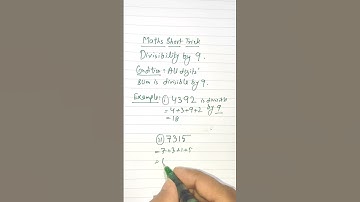 Maths Short Trick
Divisibility by 9.
Condition: All digits'
sum is divisible by 9.
Example: (i) 4392 is divisible by 9
= 4+3+9+2
= 18
(ii) 7315
= 7+3+1+5
= (